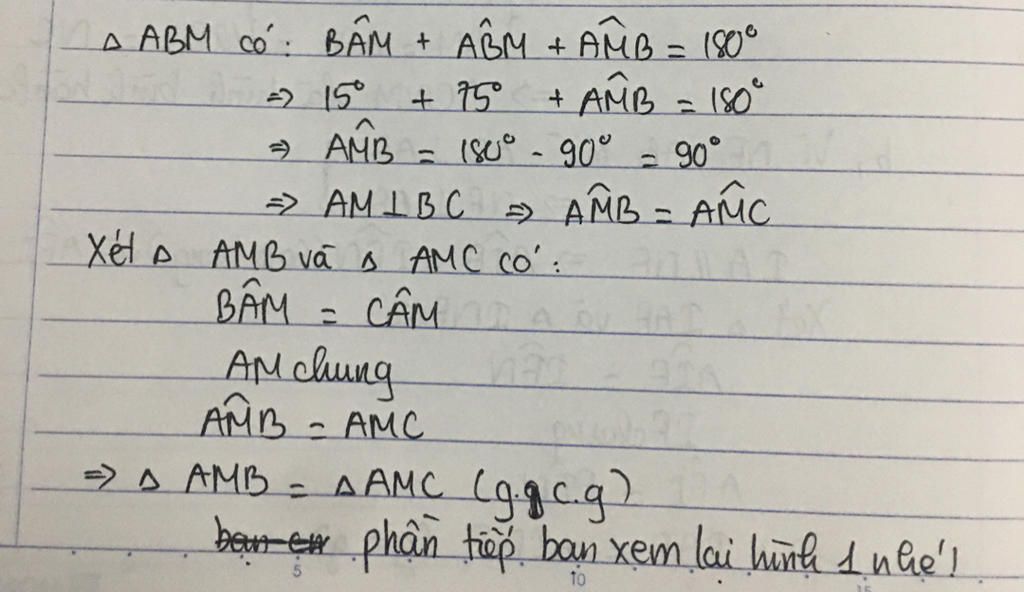 Δ ABM có: BÂM + AB̂M + AM̂B = 180°
⇒ 15° + 75° + AM̂B = 180°
⇒ AM̂B = 180° - 90° = 90°
⇒ AM⊥BC ⇒ AM̂B = AM̂C
Xét Δ AMB và Δ AMC có:
BÂM = CÂM
AM chung
AM̂B = AMC
⇒ Δ AMB = Δ AMC (g.c.g)
phần tiếp bạn xem lại hình 1 nhé!
5 10 15